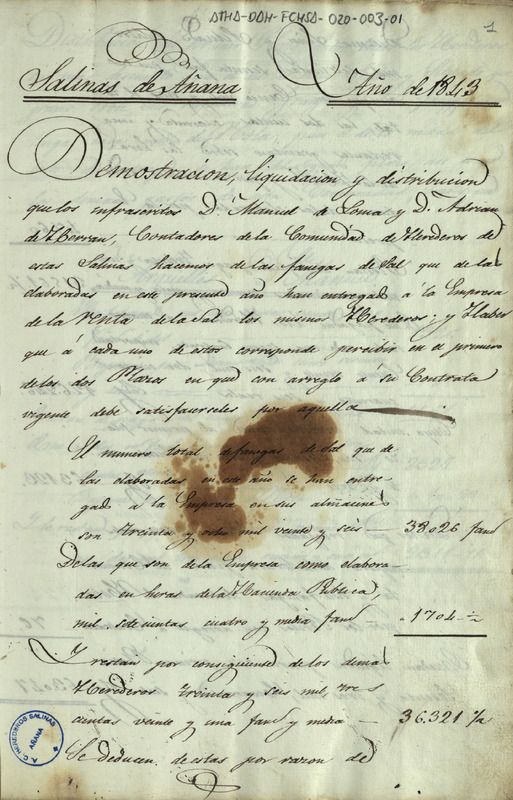 ATHA-DAH-FCHSA-020-003-01
1
Salinas de Añana Año de 1843
Demostracion, liquidacion y distribucion
que los infrascritos D. Manuel de Loma y D. Adrian
de Herran, Contadores de la Comunidad de Herederos de
estas Salinas hacemos de las fanegas de Sal que de las
elaboradas en este presente año han entregado á la Empresa
de la Venta de la Sal los mismos Herederos; y Haber
que á cada uno de estos corresponde percibir en el primero
de los dos Plazos en que con arreglo á su Contrata
vigente debe satisfacerseles por aquella
El numero total de fanegas de Sal que de
las elaboradas en este año se han entre-
gado á la Empresa en sus almacenes
son treinta y ocho mil veinte y seis 38.026 fans
De las que son de la Empresa como elabora-
das en heras de la Hacienda Publica,
mil setecientas cuatro y media fans 1704 ½
Y restan por consiguiente de los demas
Herederos treinta y seis mil tres
cientas veinte y una fans y media 36.321 ½
Se deducen de estas por razon de
A.C. HEREDEROS SALINAS
AÑANA